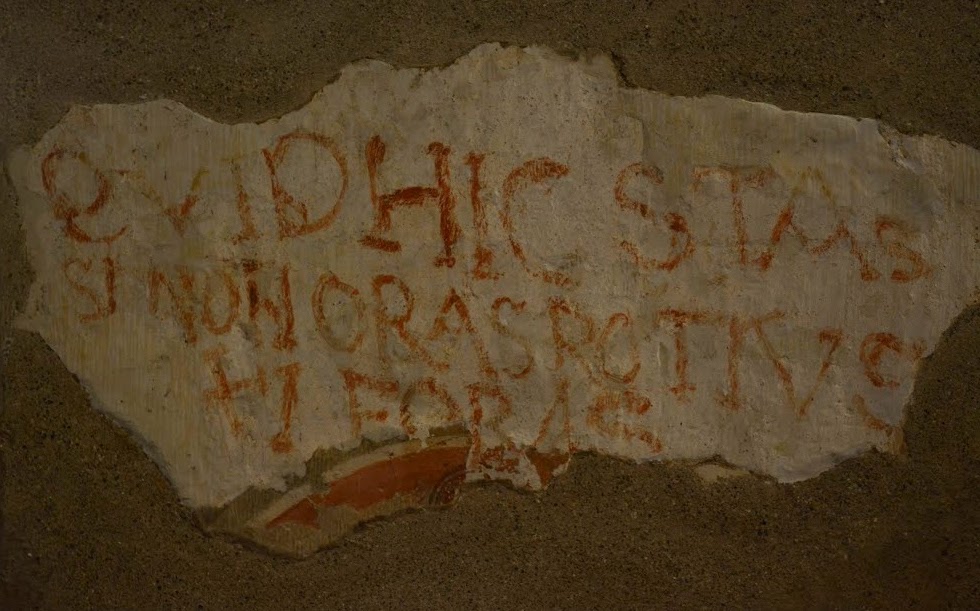 QVID HIC STAS
SI NON ORAS POTIVS
HI FORAS